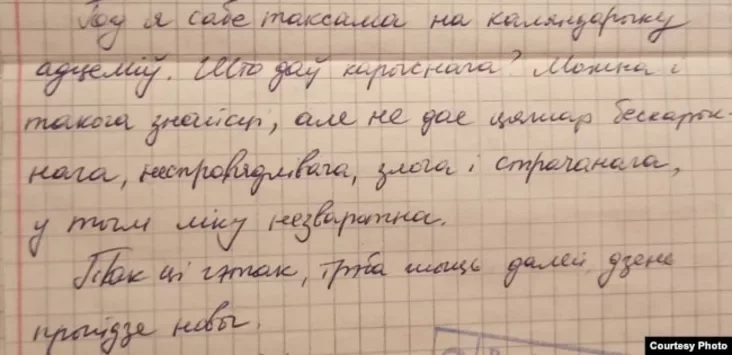 Год я сабе таксама на каляндарыку
адцеміў. Што даў карыснага? Можна і
такога знайсці, але не дае цяжар бескарыс-
нага, несправядлівага, злога і страчанага,
у тым ліку незваротна.
Так ці гэтак, трэба жыць далей, дзене
прыйдзе новы.
Courtesy Photo